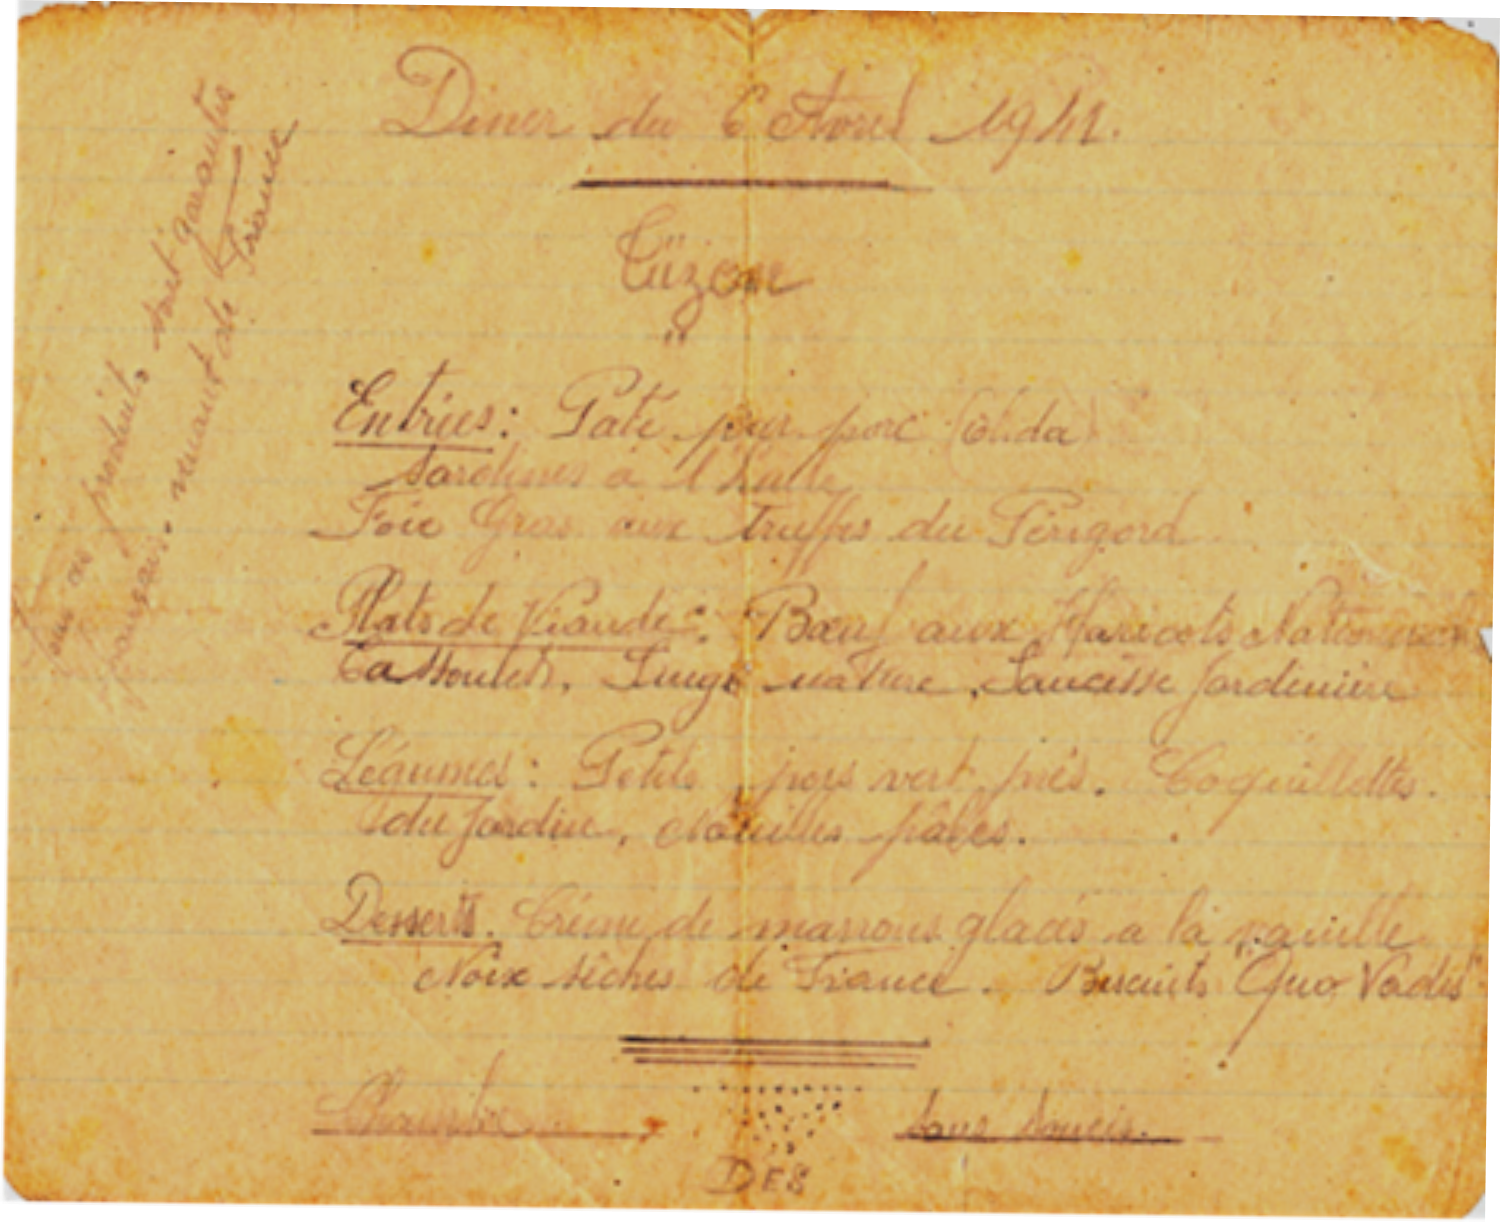 Diner du 6 Avril 1941.
Entrées: Paté pur porc (Olida)
Sardines à l'huile
Foie Gras aux truffes du Périgord
Plats de Viande: Bœuf aux Haricots
Cassoulets, Singe nature, Saucisse Jardinière
Légumes: Petits pois vert prés. Coquillettes.
du Jardin, Nouilles pâles.
Desserts. Crème de marrons glacés a la vanille
Noix sèches de France. Biscuits "Quo Vadis"
Chambre
DES
Sans Soucis.
Tous ces produits sont garantis
français. venant de France